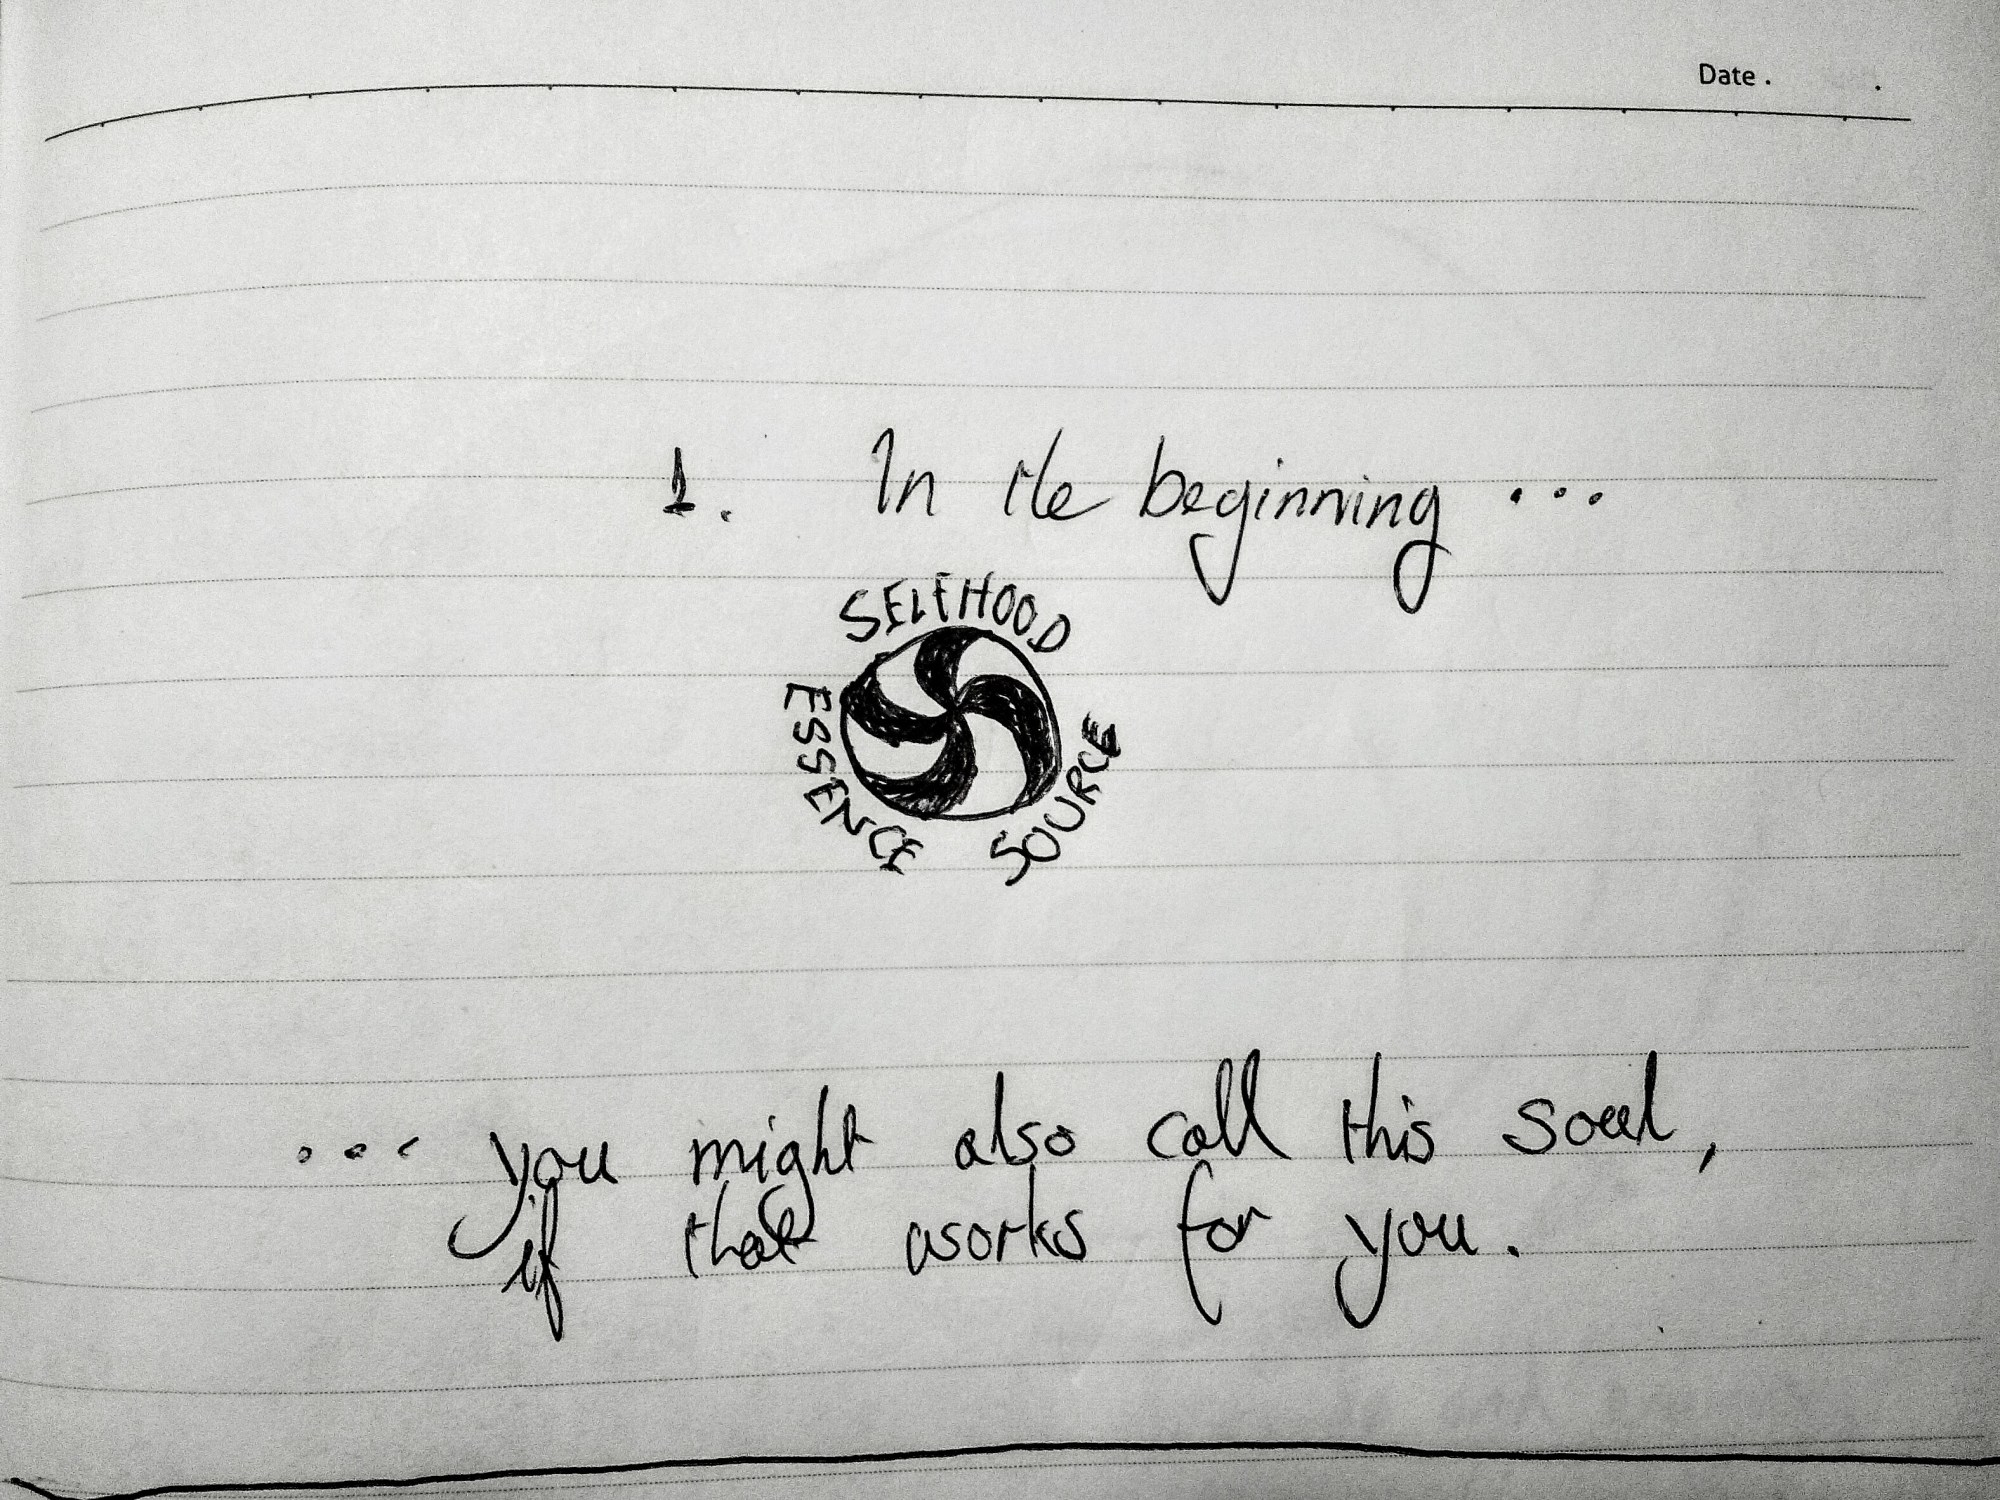 Date . .
1. In the beginning ...
SELFHOOD
ESSENCE
SOURCE
... you might also call this soul,
if that works for you.